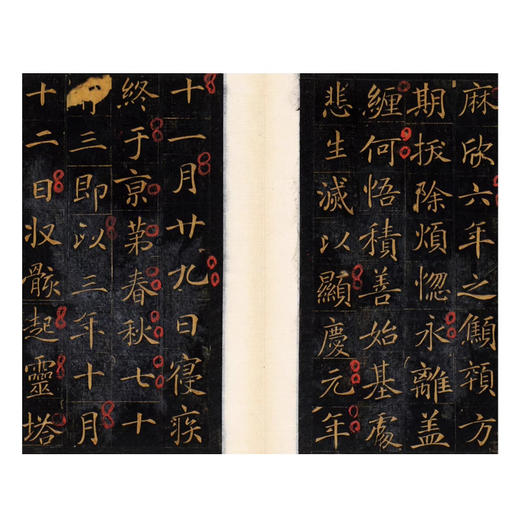 麻欣六年之顦顇方
期拔除煩惚永離盖
纏何悟積善始基處
悲生滅以顯慶元年
十一月廿九日寢疾
終于亰第春秋七十
三即以三年十月
十二日収骸起靈塔